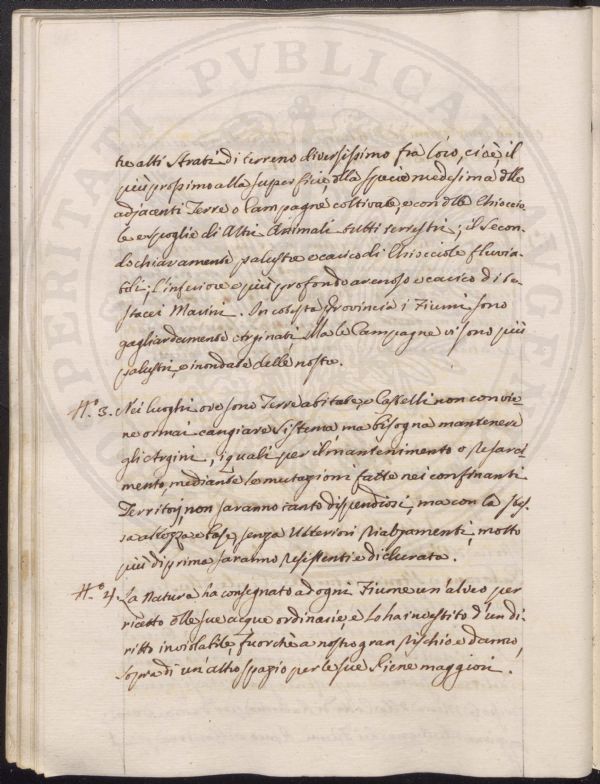 PROSPERITATI PVBLICAE AVGENDAE
tre alti Strati di terreno diversissimo fra loro, cioè, il
più prossimo alla superficie, della specie medesima delle
adjacenti Terre o Campagne coltivate, e con delle Chioccio
le e spoglie di Altri Animali tutti terrestri; il Secon
do chiaramente palustre e carico di Chiocciole fluvia-
tili; l'inferiore e più profondo arenoso e carico di te-
stacei Marini. In cotesta Provincia i Fiumi sono
gagliardamente Arginati. Ma le Campagne vi sono più
palustri, e inondate delle nostre.
N.° 3. Nei luoghi ove sono Terre abitate, e Castelli non convie-
ne ormai cangiare Sistema ma bisogna mantenere
gli Argini, i quali per il mantenimento o Resarci-
mento, mediante le mutazioni fatte nei confinanti
Territorj, non saranno tanto dispendiosi, ma con la stes-
sa altezza e base, senza Ulteriori Rialzamenti, molto
più di prima saranno Resistenti e di durata.
N.° 4. La Natura ha consegnato ad ogni Fiume un'alveo per
ricetto delle sue acque ordinarie, e lo ha investito d'un di-
ritto inviolabile, fuorchè a nostro gran Rischio e danno,
sopra di un'altro spazio per le sue Piene maggiori.